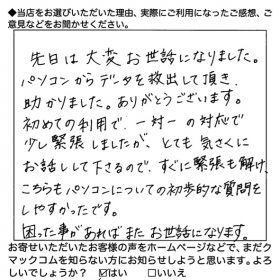 ◆当店をお選びいただいた理由、実際にご利用になったご感想、ご
意見などをお聞かせください。
先日は大変お世話になりました。
パソコンからデータを救出して頂き、
助かりました。ありがとうございます。
初めての利用で、一対一の対応で
少し緊張しましたが、とても気さくに
お話しして下さるので、すぐに緊張も解け、
こちらもパソコンについての初歩的な質問を
しやすかったです。
困った事があればまたお世話になります。
お寄せいただいたお客様の声をホームページなどで、まだク
マックコムを知らない方にお知らせしようと思います。よろ
しいでしょうか？ ☑はい □いいえ